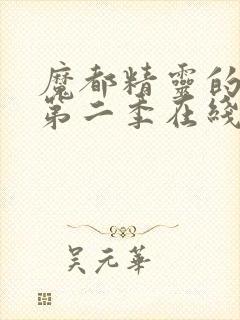 魔都精靈的
第二季在綫
吳元華